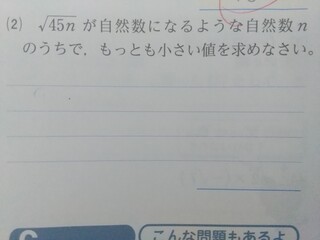 (2) √45n が自然数になるような自然数 n
のうちで,もっとも小さい値を求めなさい。
こんな問題もあるよ